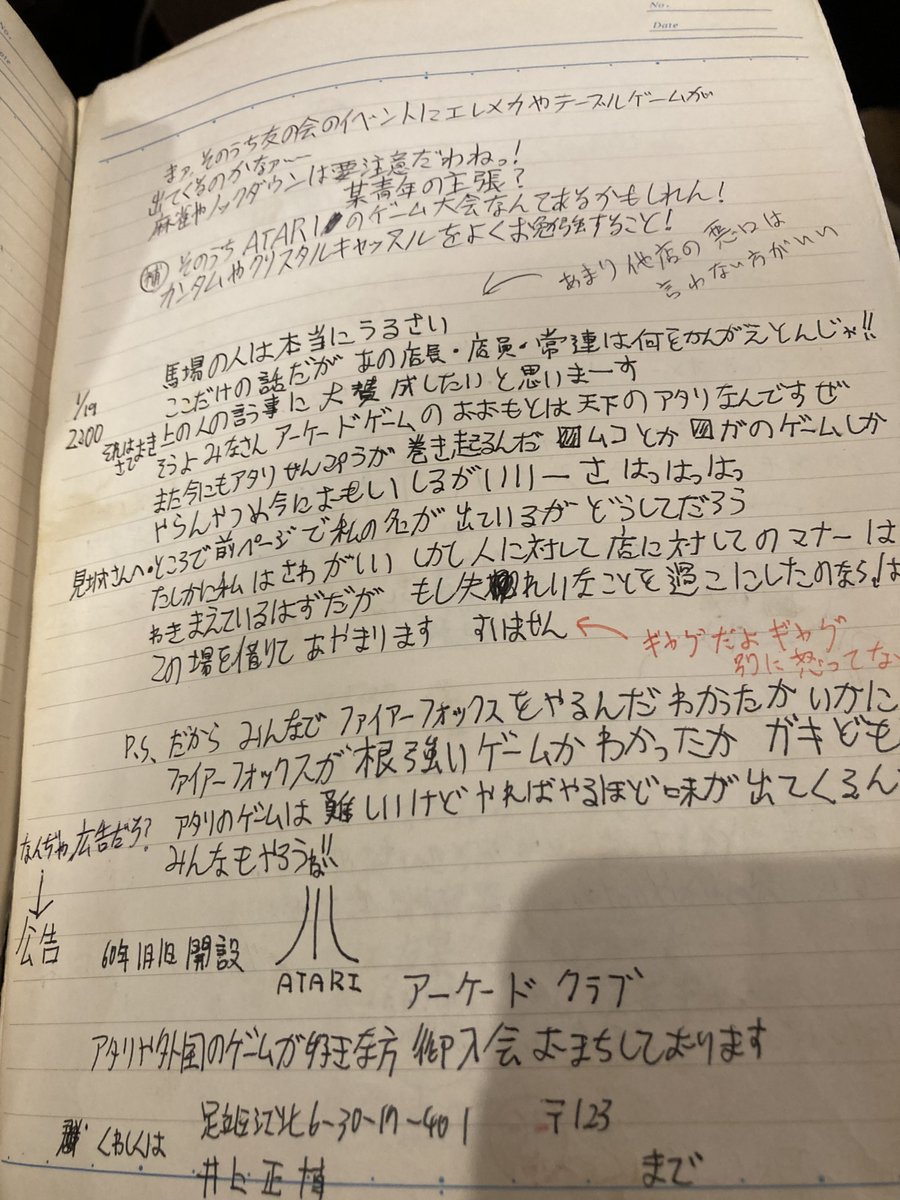 No.
Date
まァ、そのうち友の会のイベントにエレメカやテーブルゲームが
出てくるのかなァ〜
麻雀やノックダウンは要注意だわねっ!
某青年の主張?
補 そのうち ATARI のゲーム大会なんてあるかもしれん!
ガンダムやクリスタルキャッスルをよくお勉強すること!
あまり他店の悪口は
言わない方がいい
馬場の人は本当にうるさい
ここだけの話だが あの店長・店員・常連は何をかんがえとんじゃ!!
1/19
2200
上の人の言う事に大賛成したいと思いまーす
それはさておき
そうよ みなさん アーケードゲームの おおもとは 天下のアタリなんですぜ
また今にもアタリせんぷうが 巻き起るんだ ムコとか ガのゲームしか
やらんやつめ今に おもいしるがいいーさ はっはっはっ
見城さんへ・ところで前ページで私の名が出ているが どうしてだろう
たしかに私は さわがしい しかし人に対して店に対してのマナーは
わきまえているはずだが もし失れいなことを過こにしたのなら、
この場を借りて あやまります すいません
ギャグだよギャグ
別に怒ってな
P.S. だから みんなで ファイアーフォックスをやるんだ わかったか いかに
ファイアーフォックスが根強いゲームか わかったか ガキども
アタリのゲームは 難しいけど やればやるほど 味が出てくるん
みんなもやろうね!!
なんぢゃ,広告だろ?
公告
60年1月1日 開設
ATARI
アーケード クラブ
アタリや外国のゲームが好きな方 御入会 おまちしております
くわしくは
足立区江北6-30-17-401
〒123
井上正博
まで